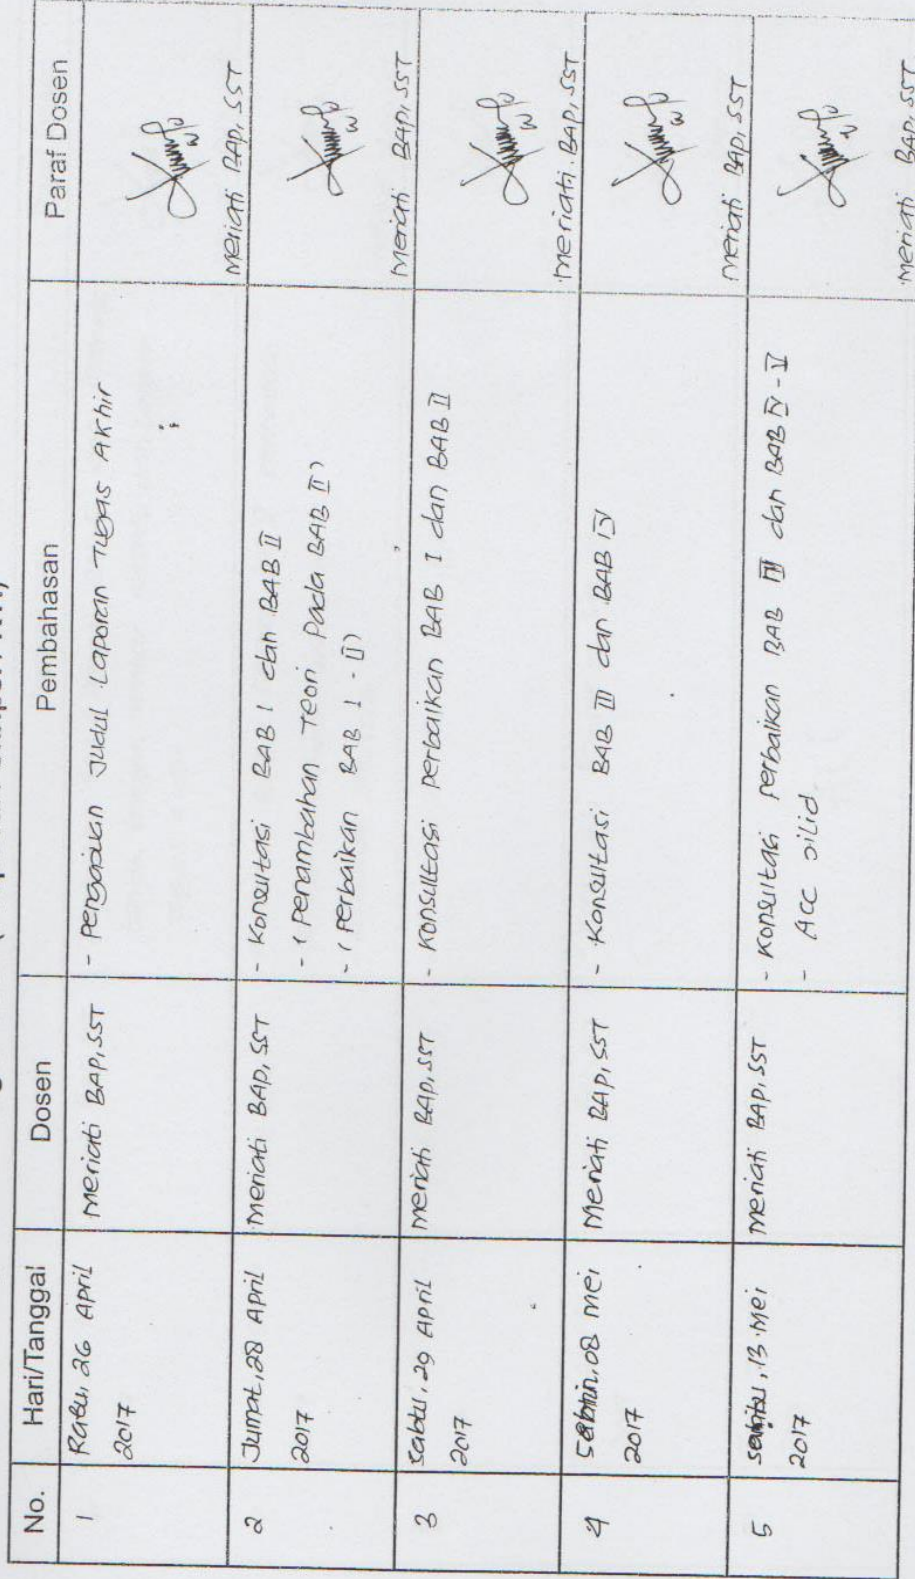 No.
Hari/Tanggal
Dosen
Pembahasan
Paraf Dosen
1
Rabu, 26 April
2017
Meriati BAP, SST
- Pengajuan Judul Laporan Tugas Akhir
Meriati BAP, SST
2
Jumat, 28 April
2017
Meriati BAP, SST
- Konsultasi BAB I dan BAB II
- (Penambahan Teori pada BAB II)
- (Perbaikan BAB I - II)
Meriati BAP, SST
3
Sabtu, 29 April
2017
Meriati BAP, SST
- Konsultasi perbaikan BAB I dan BAB II
Meriati BAP, SST
4
08 Mei
2017
Meriati BAP, SST
- Konsultasi BAB III dan BAB IV
Meriati BAP, SST
5
13 Mei
2017
Meriati BAP, SST
- Konsultasi perbaikan BAB III dan BAB IV - V
- ACC Jilid
Meriati BAP, SST